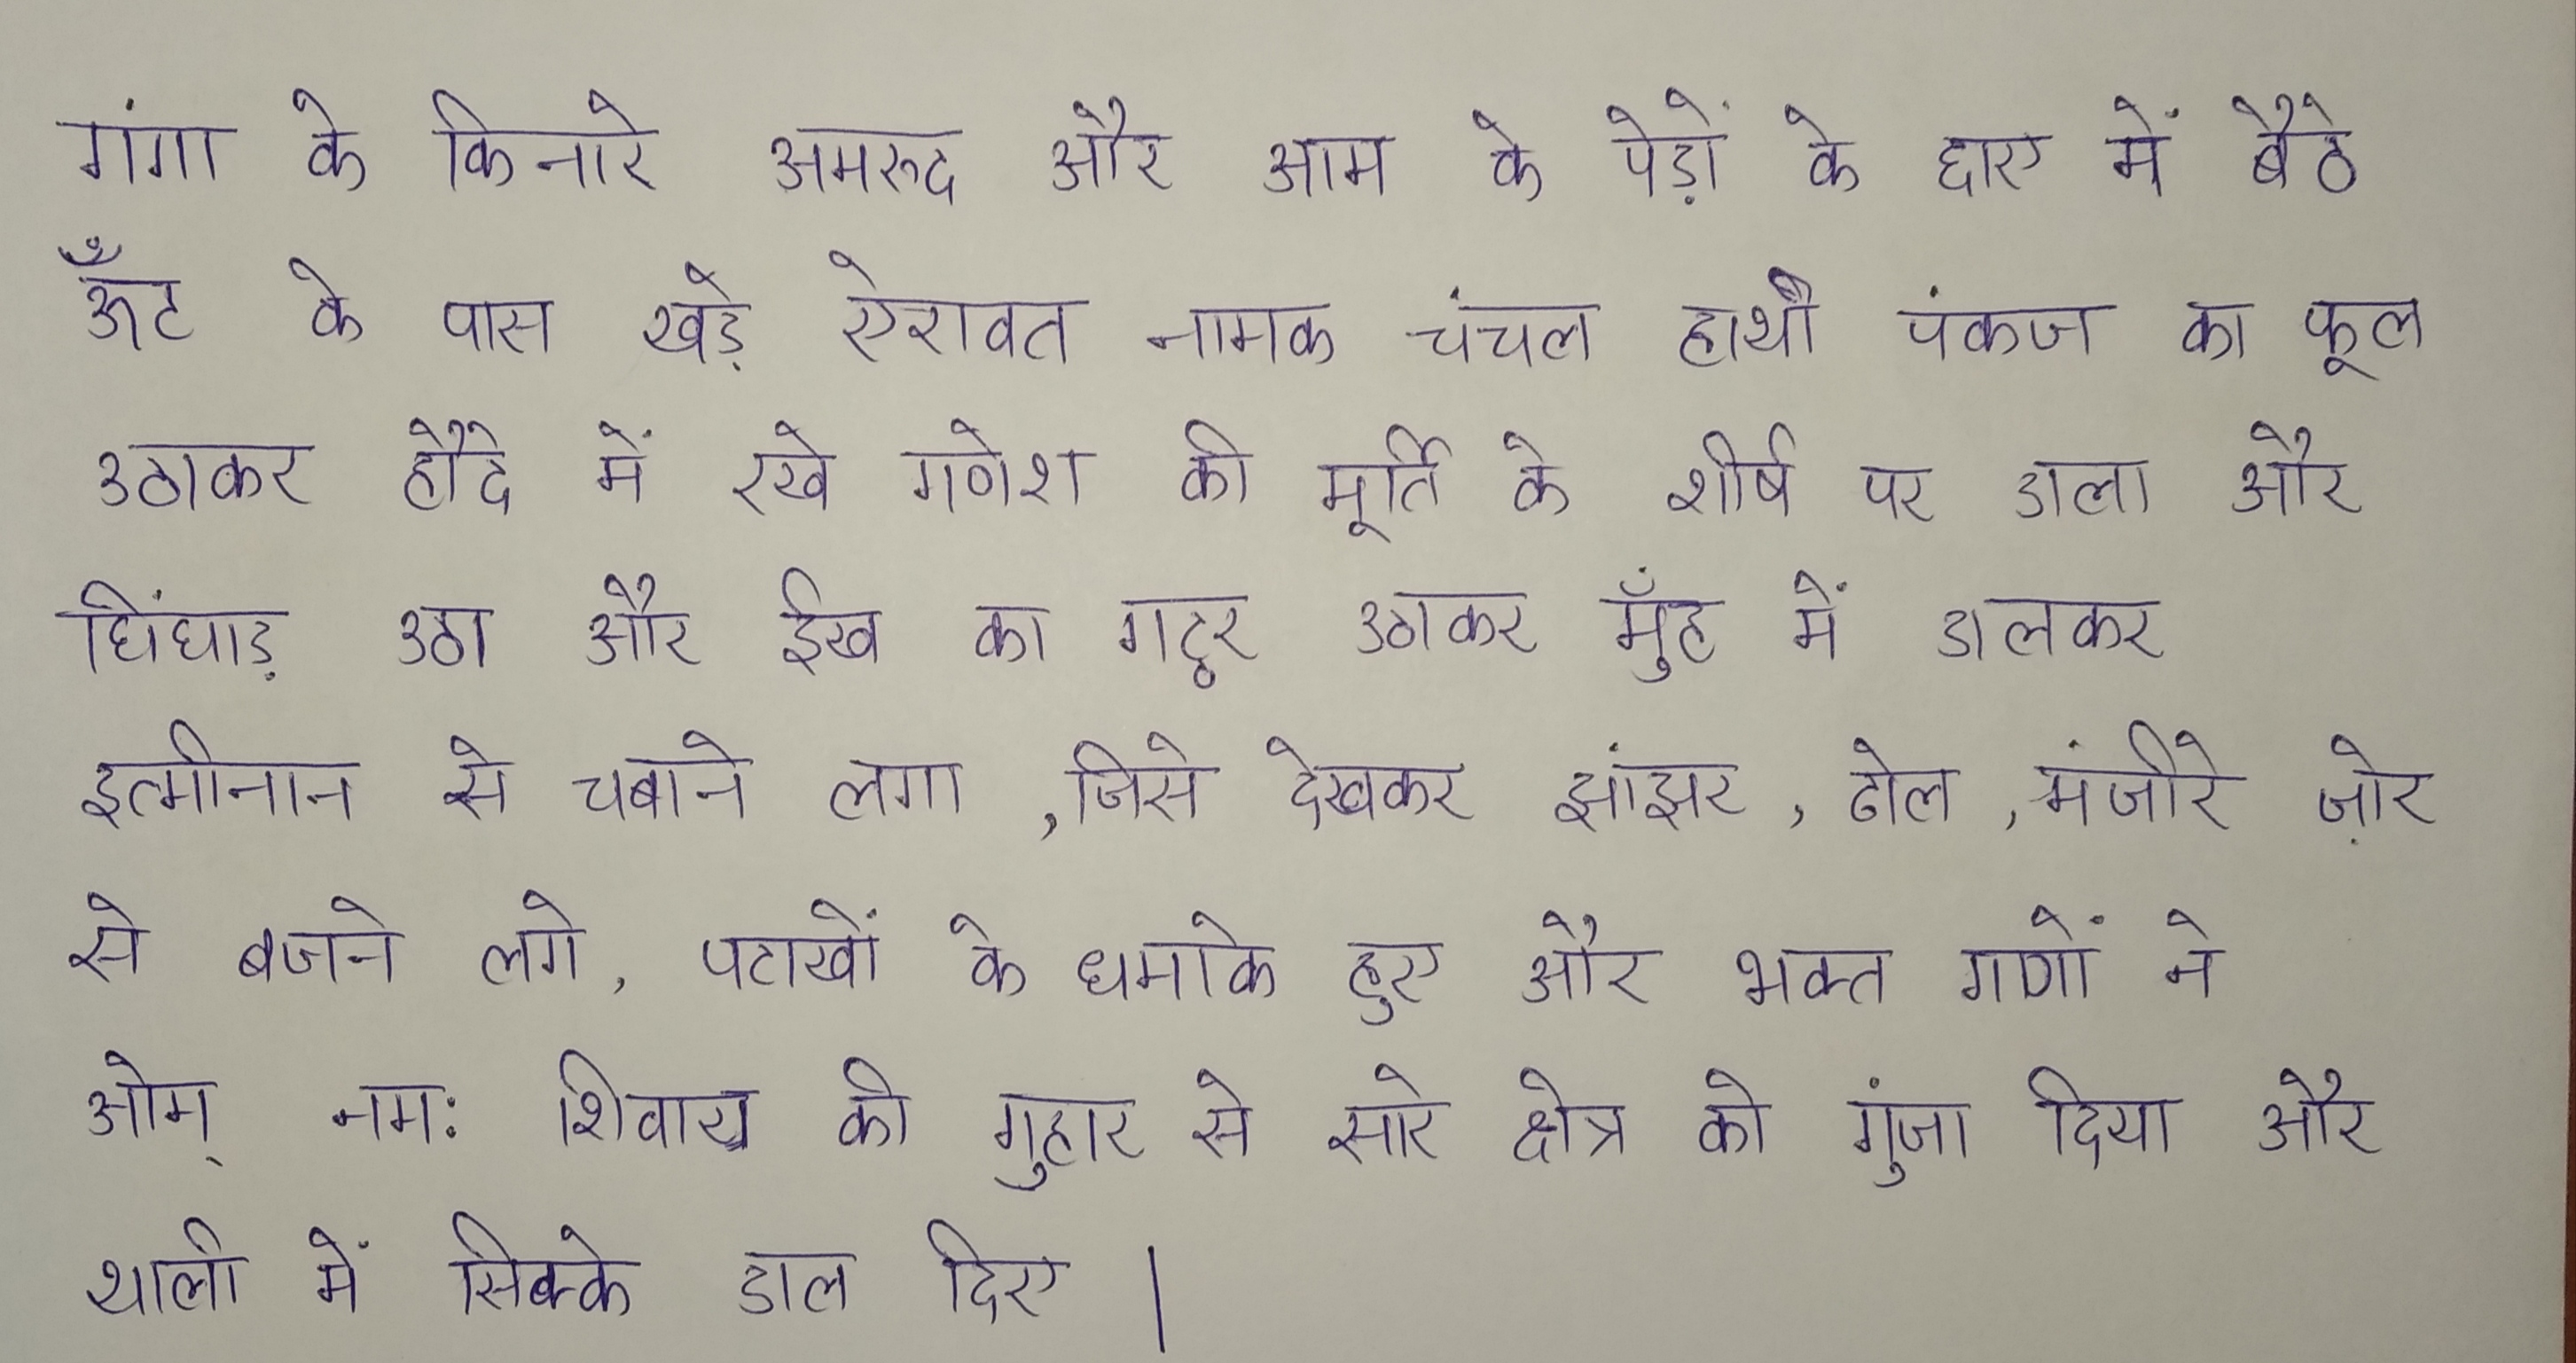 गंगा के किनारे अमरुद और आम के पेड़ों के छाए में बैठे
ऊँट के पास खड़े ऐरावत नामक चंचल हाथी पंकज का फूल
उठाकर हौदे में रखे गणेश की मूर्ति के शीर्ष पर डाला और
घिंघाड़ उठा और ईख का गट्ठर उठाकर मुँह में डालकर
इत्मीनान से चबाने लगा ,जिसे देखकर झांझर , ढोल , मंजीरे ज़ोर
से बजने लगे, पटाखों के धमाके हुए और भक्त गणों ने
ओम् नमः शिवाय की गुहार से सारे क्षेत्र को गुंजा दिया और
थाली में सिक्के डाल दिए |